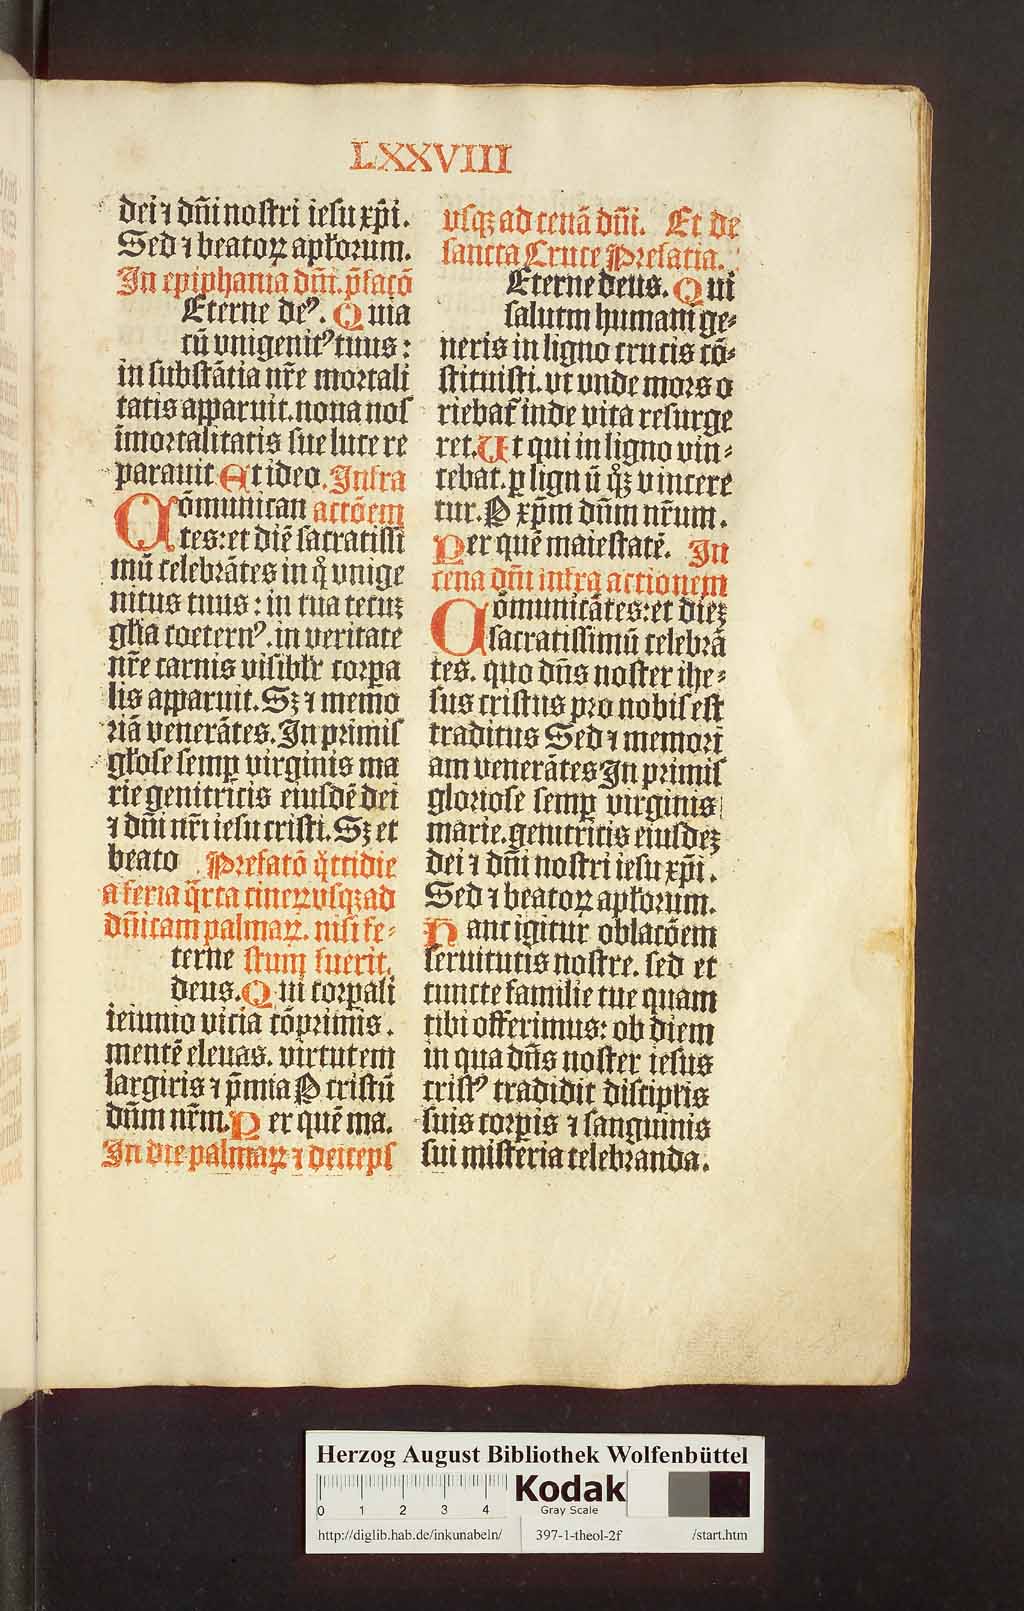 LXXVIII
dei ⁊ dñi nostri iesu xp̄i.
Sed ⁊ beatoꝝ apłorum.
In epiphania dñi. p̄facō
Eterne deꝰ. Quia
cū vnigenitꝰ tuus:
in substātia nr̄e mortali
tatis apparuit. noua nos
īmortalitatis sue luce re
parauit Et ideo. Infra
Cōmunican actōem
tes: et diē sacratissi
mū celebrātes in qͦ vnige
nitus tuus: in tua tecuꝫ
glīa coeternꝰ. in veritate
nr̄e carnis visibilr̄ corꝑa
lis apparuit. Sꝫ ⁊ memo
riā venerātes. In primis
głose semꝑ virginis ma
rie genitricis eiusdē dei
⁊ dñi nr̄i iesu cristi. Sꝫ et
beato Prefatō qͦttidie
a feria qͣrta cineꝝ vsqꝫ ad
dñicam palmaꝝ. nisi fe-
terne stum fuerit.
deus. Qui corꝑali
ieiunio vicia cōprimis.
mentē eleuas. virtutem
largiris ⁊ p̄mia P cristū
dñm nr̄m. Per quē ma.
In die palmaꝝ ⁊ deiceps
vsqꝫ ad cenā dñi. Et de
sancta Cruce Prefatia.
Eterne deus. Qui
salutm humani ge-
neris in ligno crucis cō-
stituisti. vt vnde mors o
riebat᷑ inde vita resurge
ret. Ut qui in ligno vin-
cebat. ꝑ lignū qͦꝫ vincere
tur. P xp̄m dñm nr̄um.
Per quē maiestatē. In
cena dñi infra actionem
Cōmunicātes: et dieꝫ
sacratissimū celebrā
tes. quo dñs noster ihe-
sus cristus pro nobis est
traditus Sed ⁊ memori
am venerātes In primis
gloriose semꝑ virginis
marie. genitricis eiusdeꝫ
dei ⁊ dñi nostri iesu xp̄i.
Sed ⁊ beatoꝝ apłorum.
Hanc igitur oblacōem
seruitutis nostre. sed et
cuncte familie tue quam
tibi offerimus: ob diem
in qua dñs noster iesus
cristꝰ tradidit disciplīs
suis corꝑis ⁊ sanguinis
sui misteria celebranda.
Herzog August Bibliothek Wolfenbüttel
0 1 2 3 4
Kodak
Gray Scale
http://diglib.hab.de/inkunabeln/ 397-1-theol-2f /start.htm